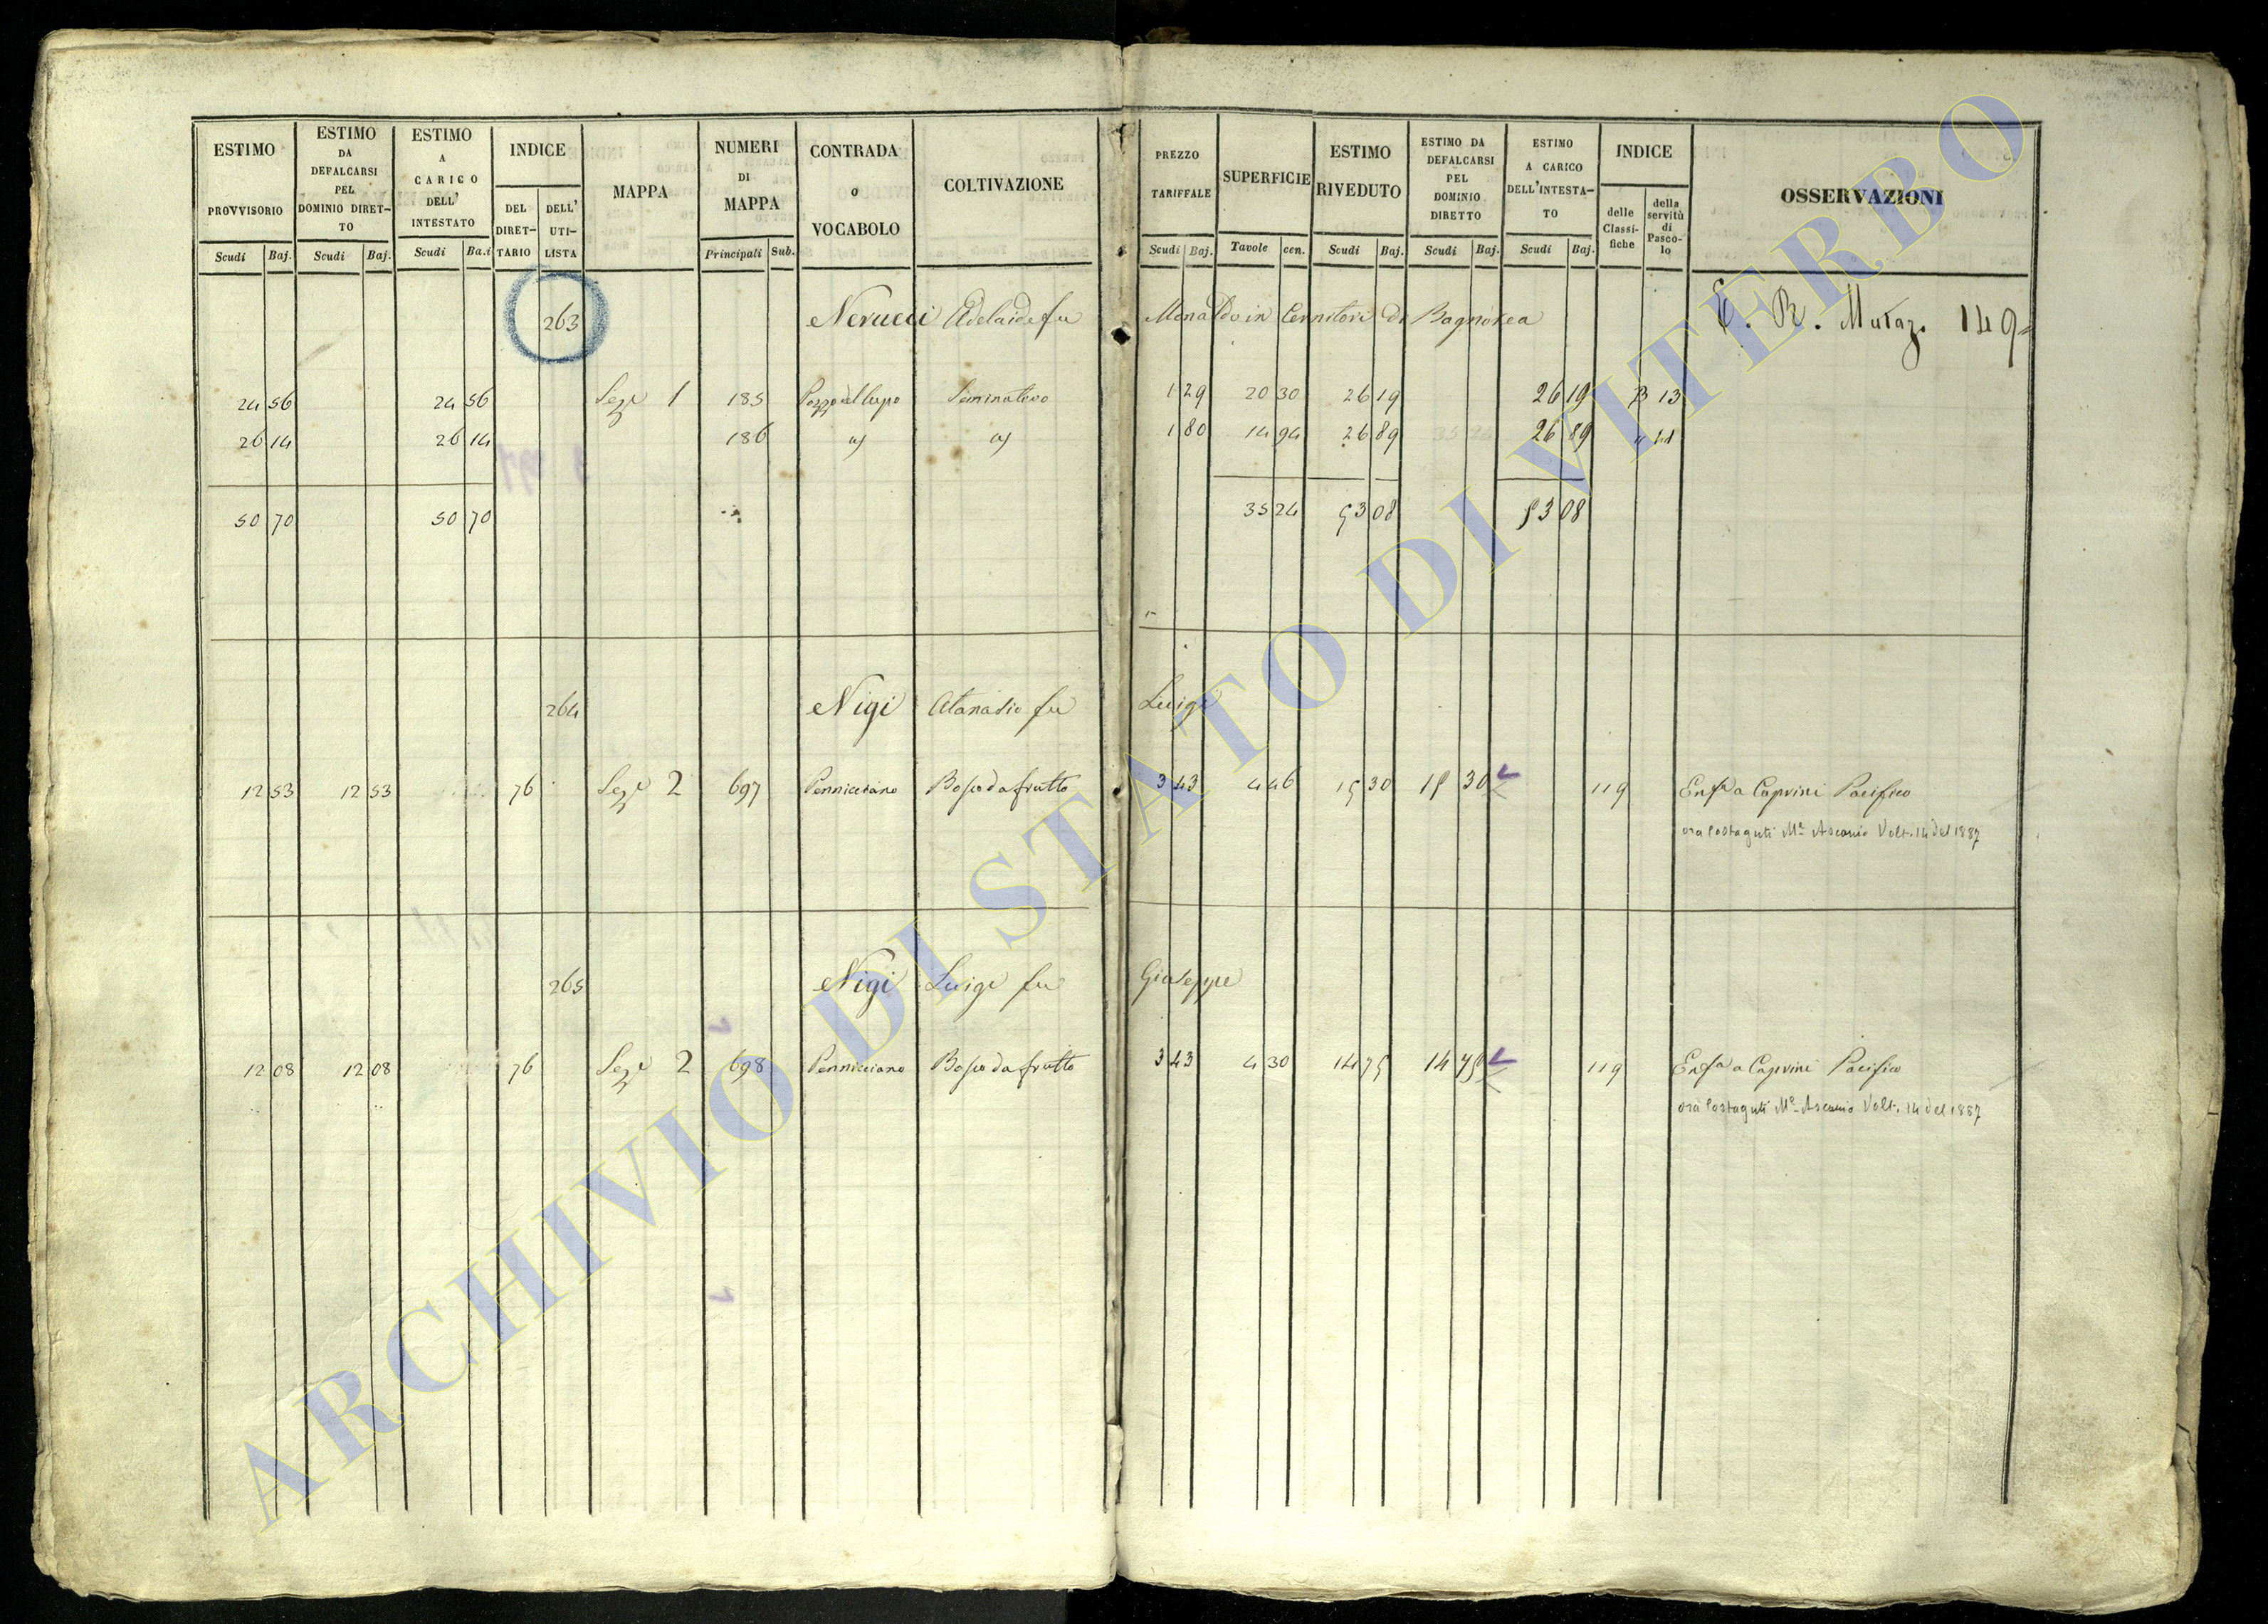 ESTIMO PROVVISORIO
Scudi Baj.
ESTIMO DA DEFALCARSI PEL DOMINIO DIRET-TO
Scudi Baj.
ESTIMO A CARICO DELL' INTESTATO
Scudi Ba.i
INDICE
DEL DIRET-TARIO
DELL' UTI-LISTA
MAPPA
NUMERI DI MAPPA
Principali Sub.
CONTRADA o VOCABOLO
COLTIVAZIONE
PREZZO TARIFFALE
Scudi Baj.
SUPERFICIE
Tavole cen.
ESTIMO RIVEDUTO
Scudi Baj.
ESTIMO DA DEFALCARSI PEL DOMINIO DIRETTO
Scudi Baj.
ESTIMO A CARICO DELL'INTESTA-TO
Scudi Baj.
INDICE
delle Classi-fiche
della servitù di Pasco-lo
OSSERVAZIONI
263 Nerucci Adelaide fu Monaldo in Cernitori di Bagnorea C. R. Mutaz. 149
24 56 24 56 Seze 1 185 Pozzo del lupo Seminativo 1 29 20 30 26 19 26 19 B 13
26 14 26 14 186 1 80 14 94 26 89 26 89
50 70 50 70 35 24 53 08 53 08
264 Nigi Atanasio fu Luigi
12 53 12 53 76 Seze 2 697 Pennicciano Bosco da frutto 3 43 4 46 15 30 15 30 119 Enfa a Caprini Pacifico
ora Costaguti Me Ascanio Volt. 14 del 1887
265 Nigi Luigi fu Giuseppe
12 08 12 08 76 Seze 2 698 Pennicciano Bosco da frutto 3 43 4 30 14 75 14 75 119 Enfa a Caprini Pacifico
ora Costaguti Me Ascanio Volt. 14 del 1887
ARCHIVIO DI STATO DI VITERBO